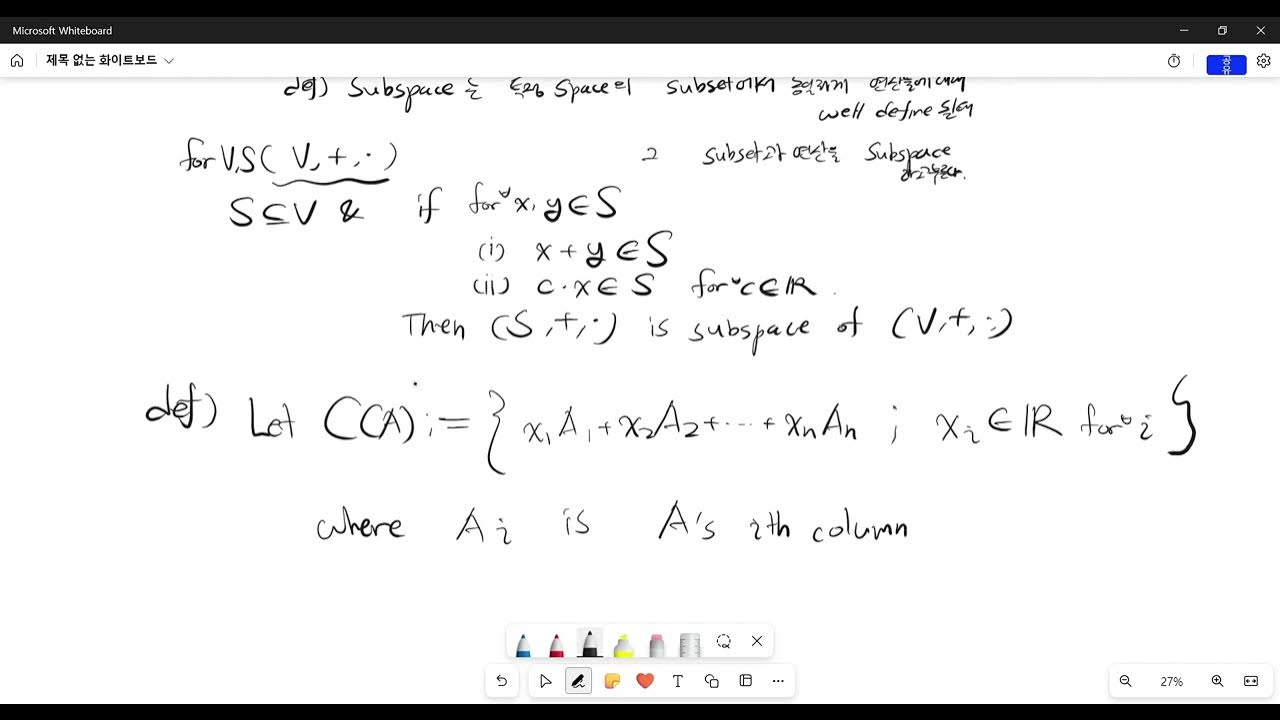 Microsoft Whiteboard
제목 없는 화이트보드
공유
def) Subspace는 특정 Space의 subset에서 동일하게 연산들에 대해
well define 될 때
for V.S ( V, +, · ) 그 subset과 연산을 Subspace
라고 부른다.
S ⊆ V & if for ∀ x, y ∈ S
(i) x + y ∈ S
(ii) c · x ∈ S for ∀ c ∈ ℝ .
Then (S, +, ·) is subspace of (V, +, ·)
def) Let C(A) := { x₁A₁ + x₂A₂ + ··· + xₙAₙ ; xᵢ ∈ ℝ for ∀ i }
where Aᵢ is A's ith column
27%